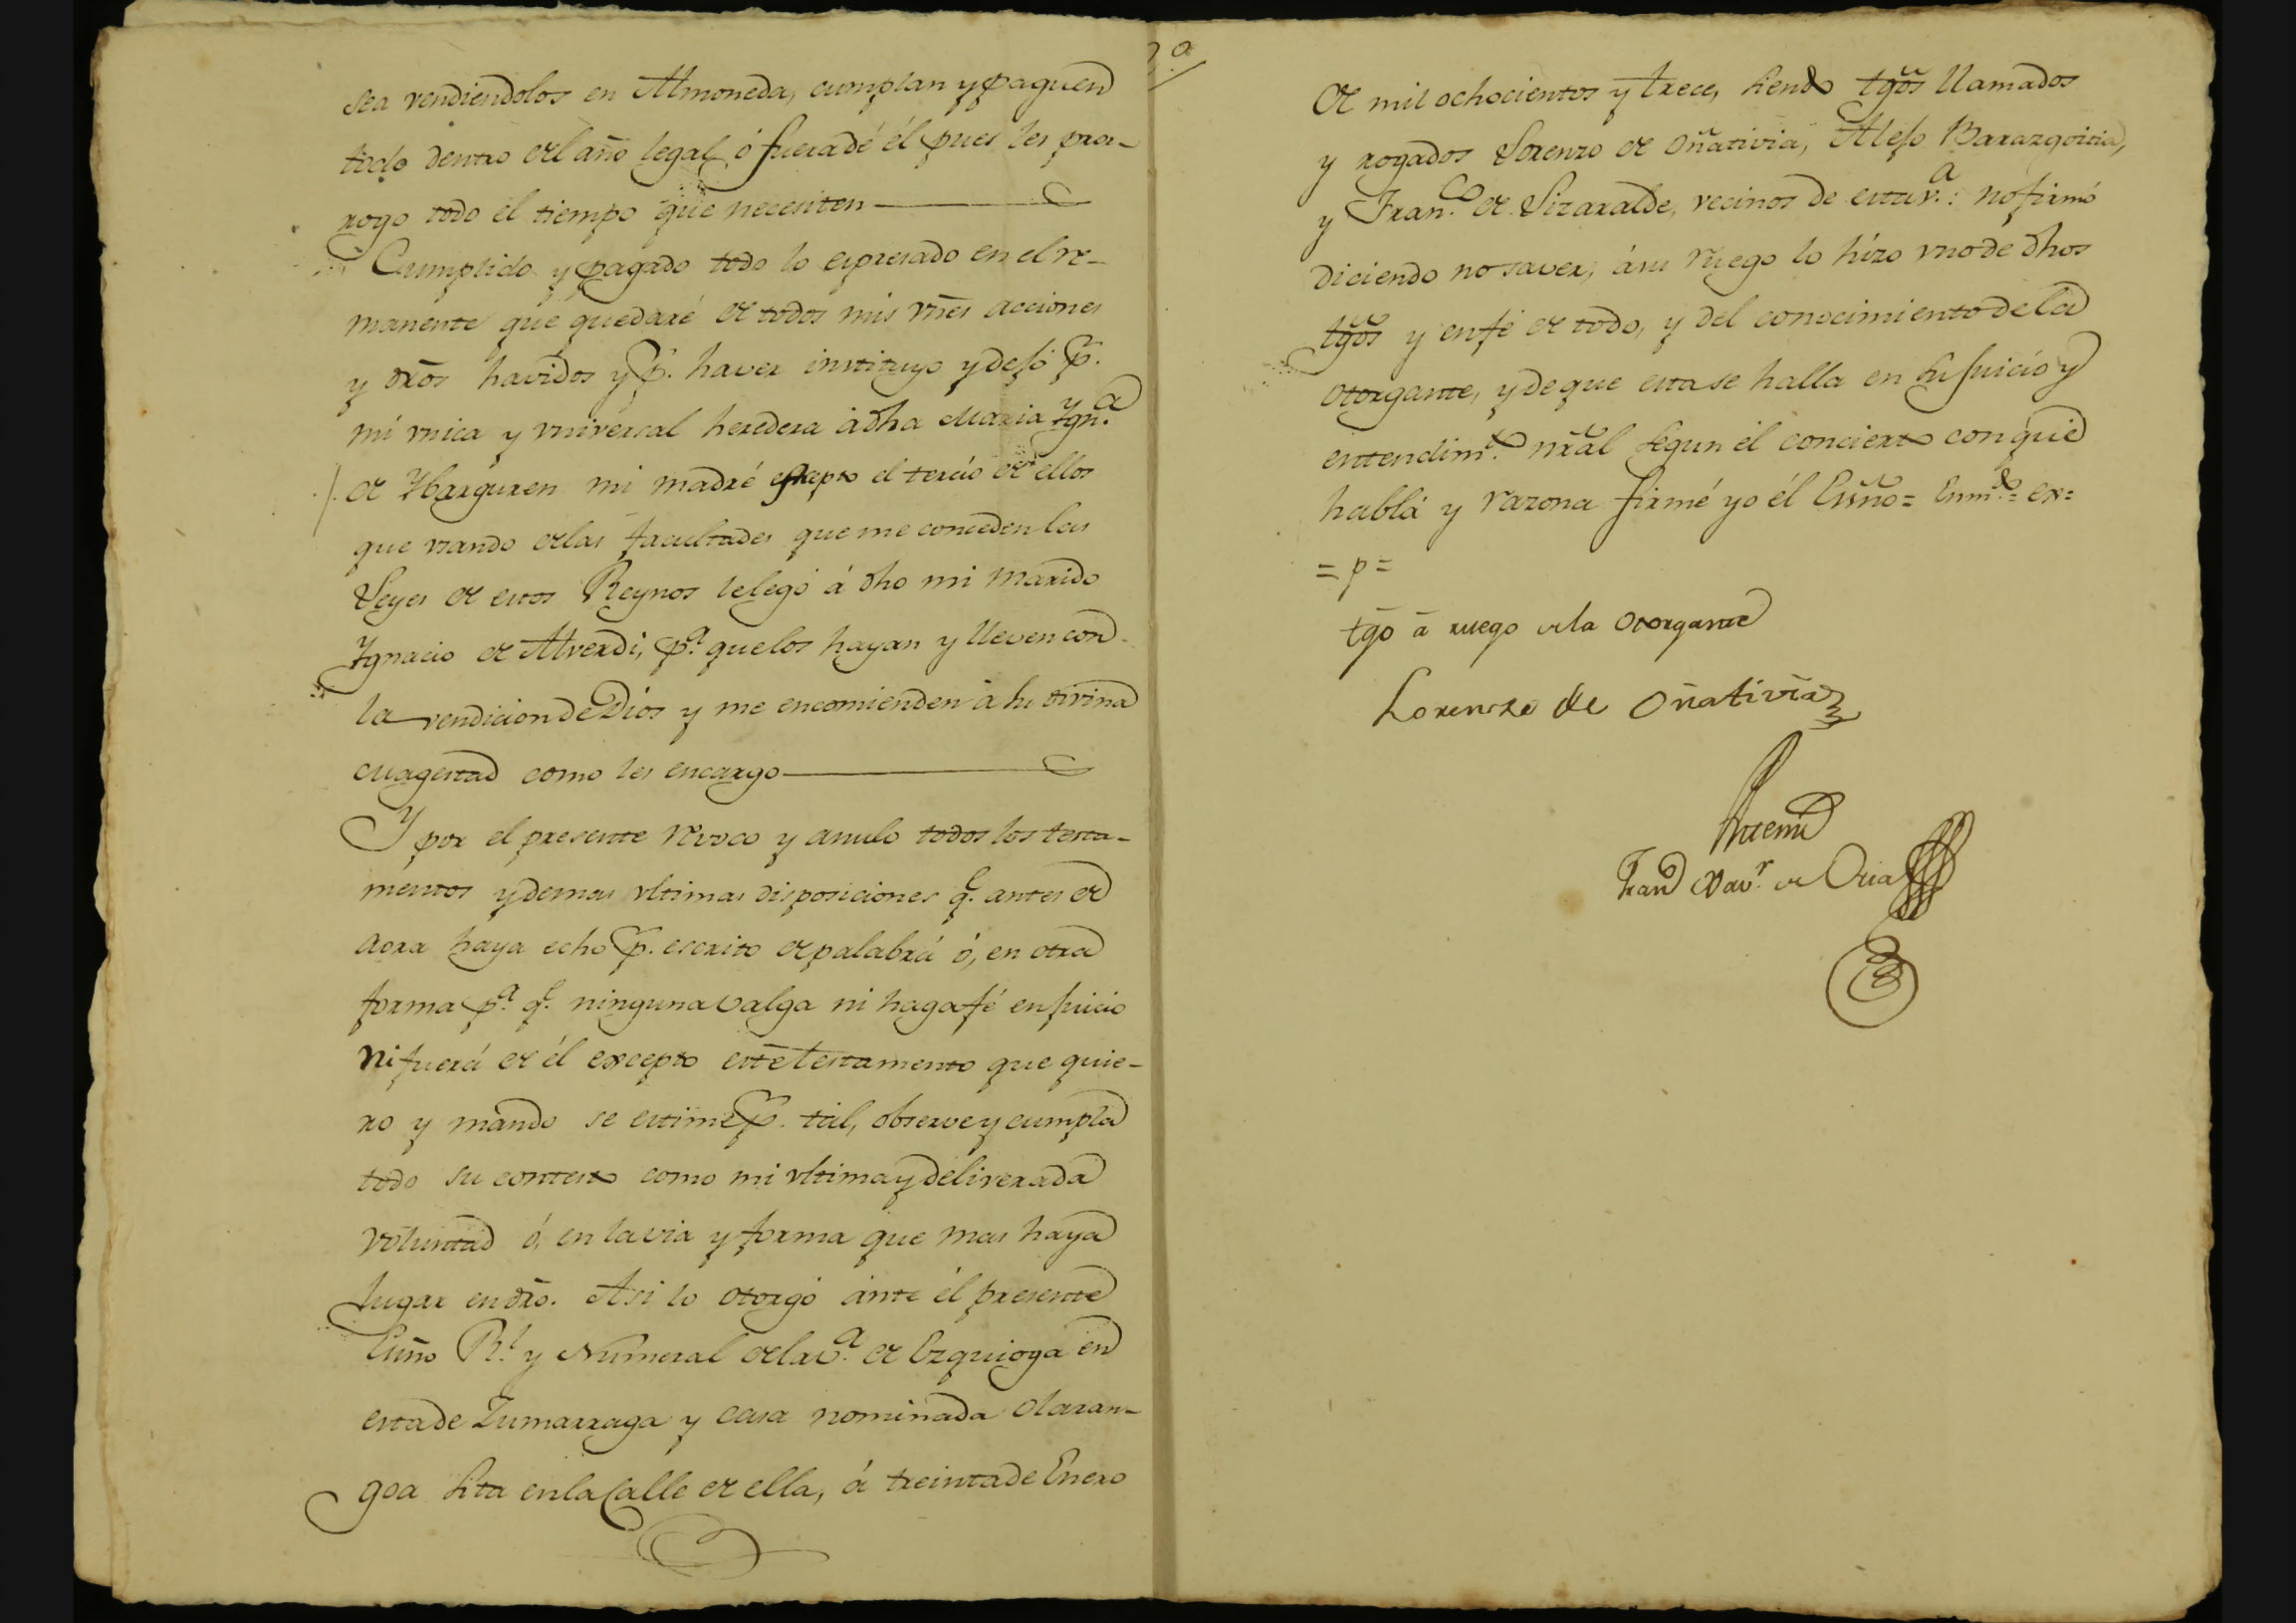 sea vendiendolos en Almoneda, cumplan y paguen
todo dentro del año legal, ó fuera dé él pues les pror-
rogo todo él tiempo que necesiten
Cumplido y pagado todo lo espresado en el re-
manente que quedaré de todos mis vnes acciones
y dros havidos y p. haver instituyo y dejó p.
mi vnica y vniversal heredera á dha Maria Ygn.a
de Ybarguren mi madré excepto el tercio de ellos
que vsando de las facultades que me conceden las
Leyes de estos Reynos le legó á dho mi marido
Ygnacio de Alverdi, p.a que los hayan y lleven con
la vendicion de Dios y me encomienden á su divina
Magestad como les encargo
Y por el presente revoco y anulo todos los testa-
mentos y demas vltimas disposiciones q.e antes de
aora haya echo p. escrito de palabrá ó, en otra
forma p.a q.e ninguna valga ni haga fé en juicio
ni fuerá de él excepto este testamento que quie-
ro y mando se estime p. tal, observe y cumpla
todo su contesto como mi vltima y deliverada
voluntad ó, en la via y forma que mas haya
lugar en dro. Asi lo otorgó ánte él presente
Essno R.l y Numeral de la v.a de Ezquioga en
esta de Zumarraga y casa nominada Olaran-
goa sita en la Calle de ella, á treinta de Enero
de mil ochocientos y trece, siendo tgos llamados
y rogados Lorenzo de Oñativia, Alejo Barazgoitia,
y Fran.co de Lizaralde, vecinos de esta v.a: no firmó
diciendo no saver, á su ruego lo hizo vno dé dhos
tgos y en fé de todo, y del conocimiento de la
otorgante, y de que esta se halla en su juicio y
entendim.to nrál segun él concierto con que
hablá y razona firmé yo él Essno = Enm.do = ex=
= p =
tgo á ruego de la otorgante
Lorenzo de Oñativia
Antemi
Fran Xav.r de Oria